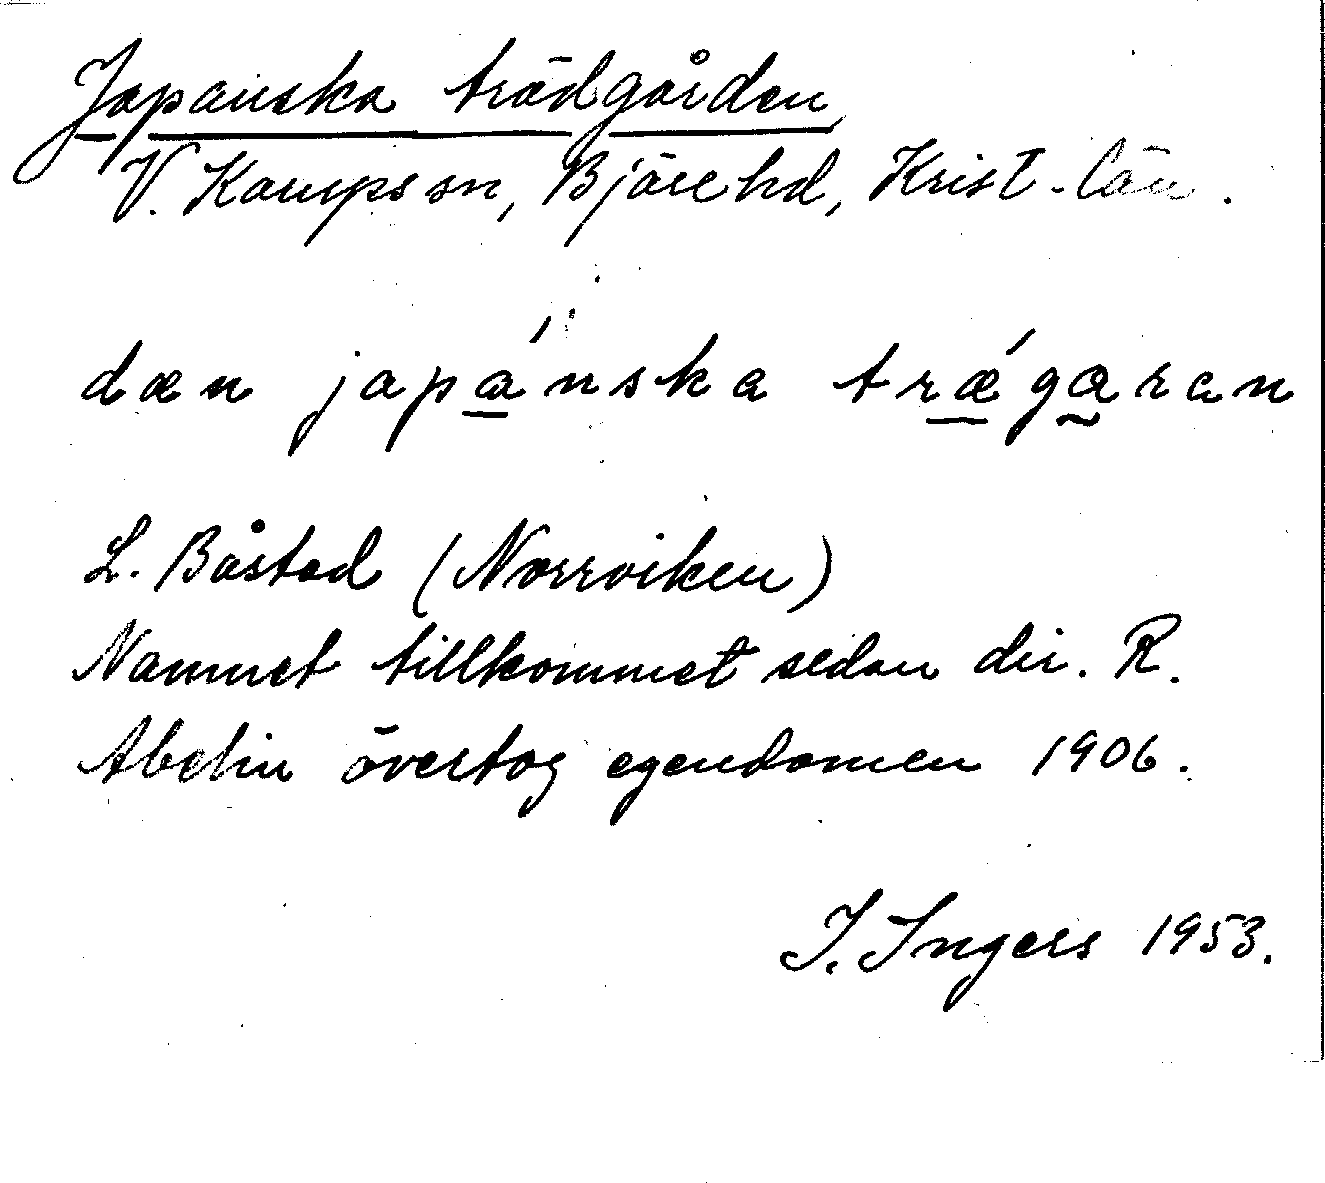 Japanska trädgården
V. Karupssn, Bjäre hd, Krist. län.
dæn japánska trǽgaran
L. Båstad (Norrviken)
Namnet tillkommet sedan dir. R.
Abelin övertog egendomen 1906.
I. Ingers 1953.